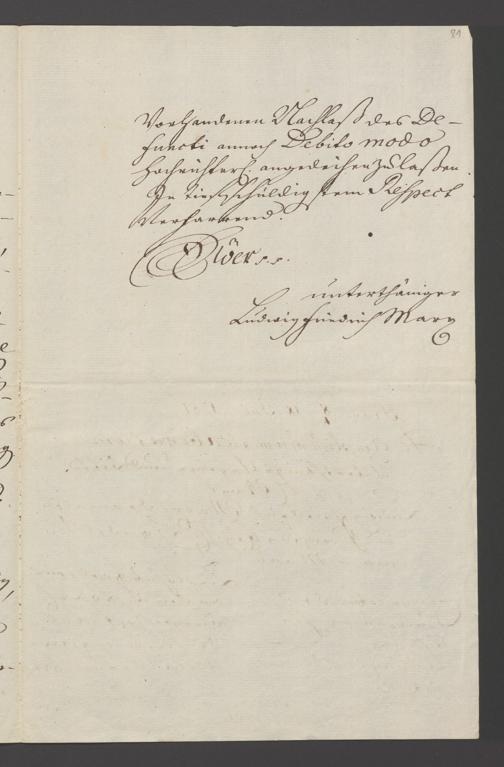 81
Vorhandenen Nachlaß des De-
functi annoch Debito modo
angedeihen zu laßen.
In tieffschuldigstem Respect
Verharrend.
unterthäniger
Ludwig Friedrich Marx